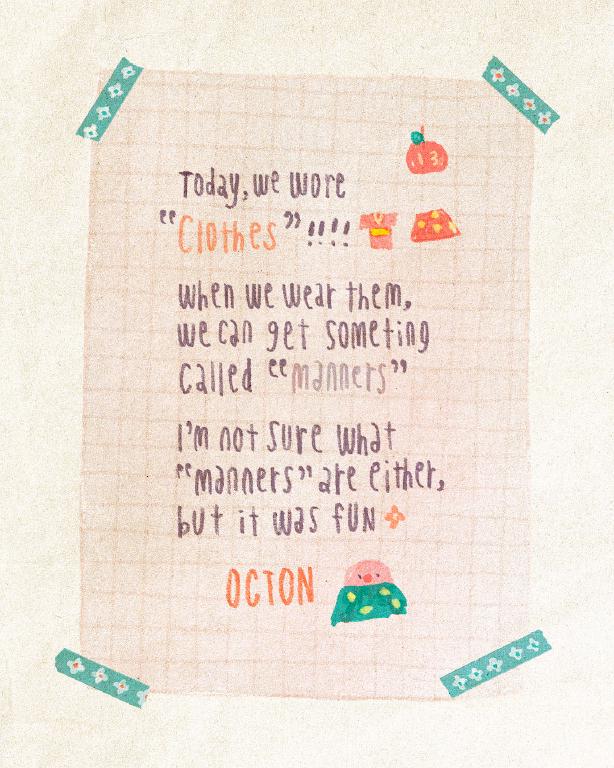 13
Today, we wore
"Clothes" !!!!
When we wear them,
we can get someting
called "manners"
I'm not sure what
"manners" are either,
but it was fun
OCTON